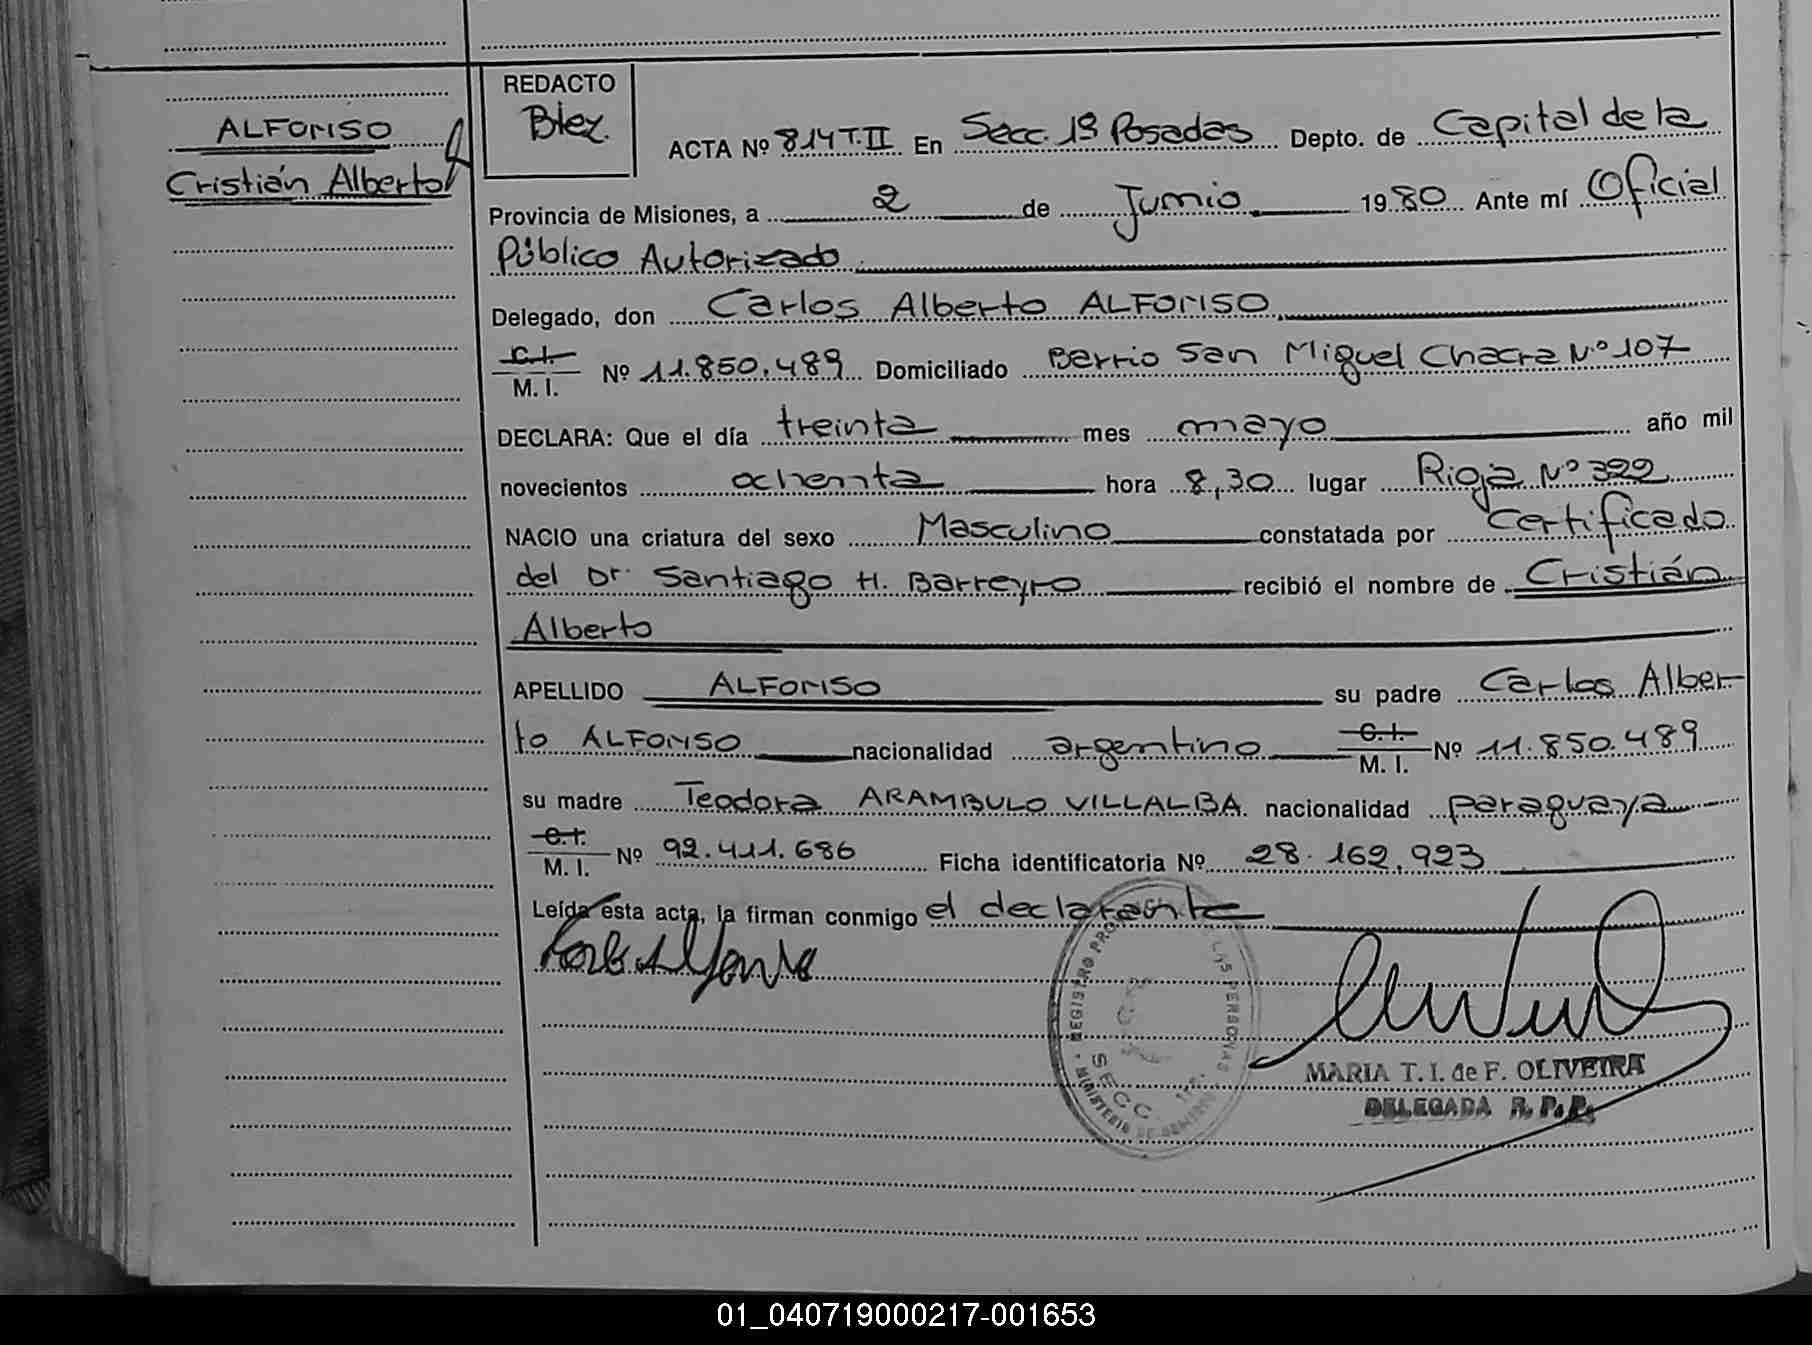 ALFONSO
Cristián Alberto
REDACTO
Btez.
ACTA Nº 814 T. II En Secc. 1ª Posadas Depto. de Capital de la
Provincia de Misiones, a 2 de Junio 1980 Ante mí Oficial
Público Autorizado
Delegado, don Carlos Alberto ALFONSO
C. I.
M. I. Nº 11.850.489 Domiciliado Barrio San Miguel Chacra Nº 107
DECLARA: Que el día treinta mes mayo año mil
novecientos ochenta hora 8,30 lugar Rioja Nº 322
NACIO una criatura del sexo Masculino constatada por Certificado
del Dr. Santiago H. Barreyro recibió el nombre de Cristián
Alberto
APELLIDO ALFONSO su padre Carlos Alber
to ALFONSO nacionalidad argentino C. I. M. I. Nº 11.850.489
su madre Teodora ARAMBULO VILLALBA nacionalidad paraguaya
C. I.
M. I. Nº 92.411.686 Ficha identificatoria Nº 28.162.923
Leída esta acta, la firman conmigo el declarante
REGISTRO PRO LAS PERSONAS
SECC. 1ra.
MINISTERIO DE GOBIERNO
MARIA T. I. de F. OLIVEIRA
DELEGADA R. P. P.
01_040719000217-001653